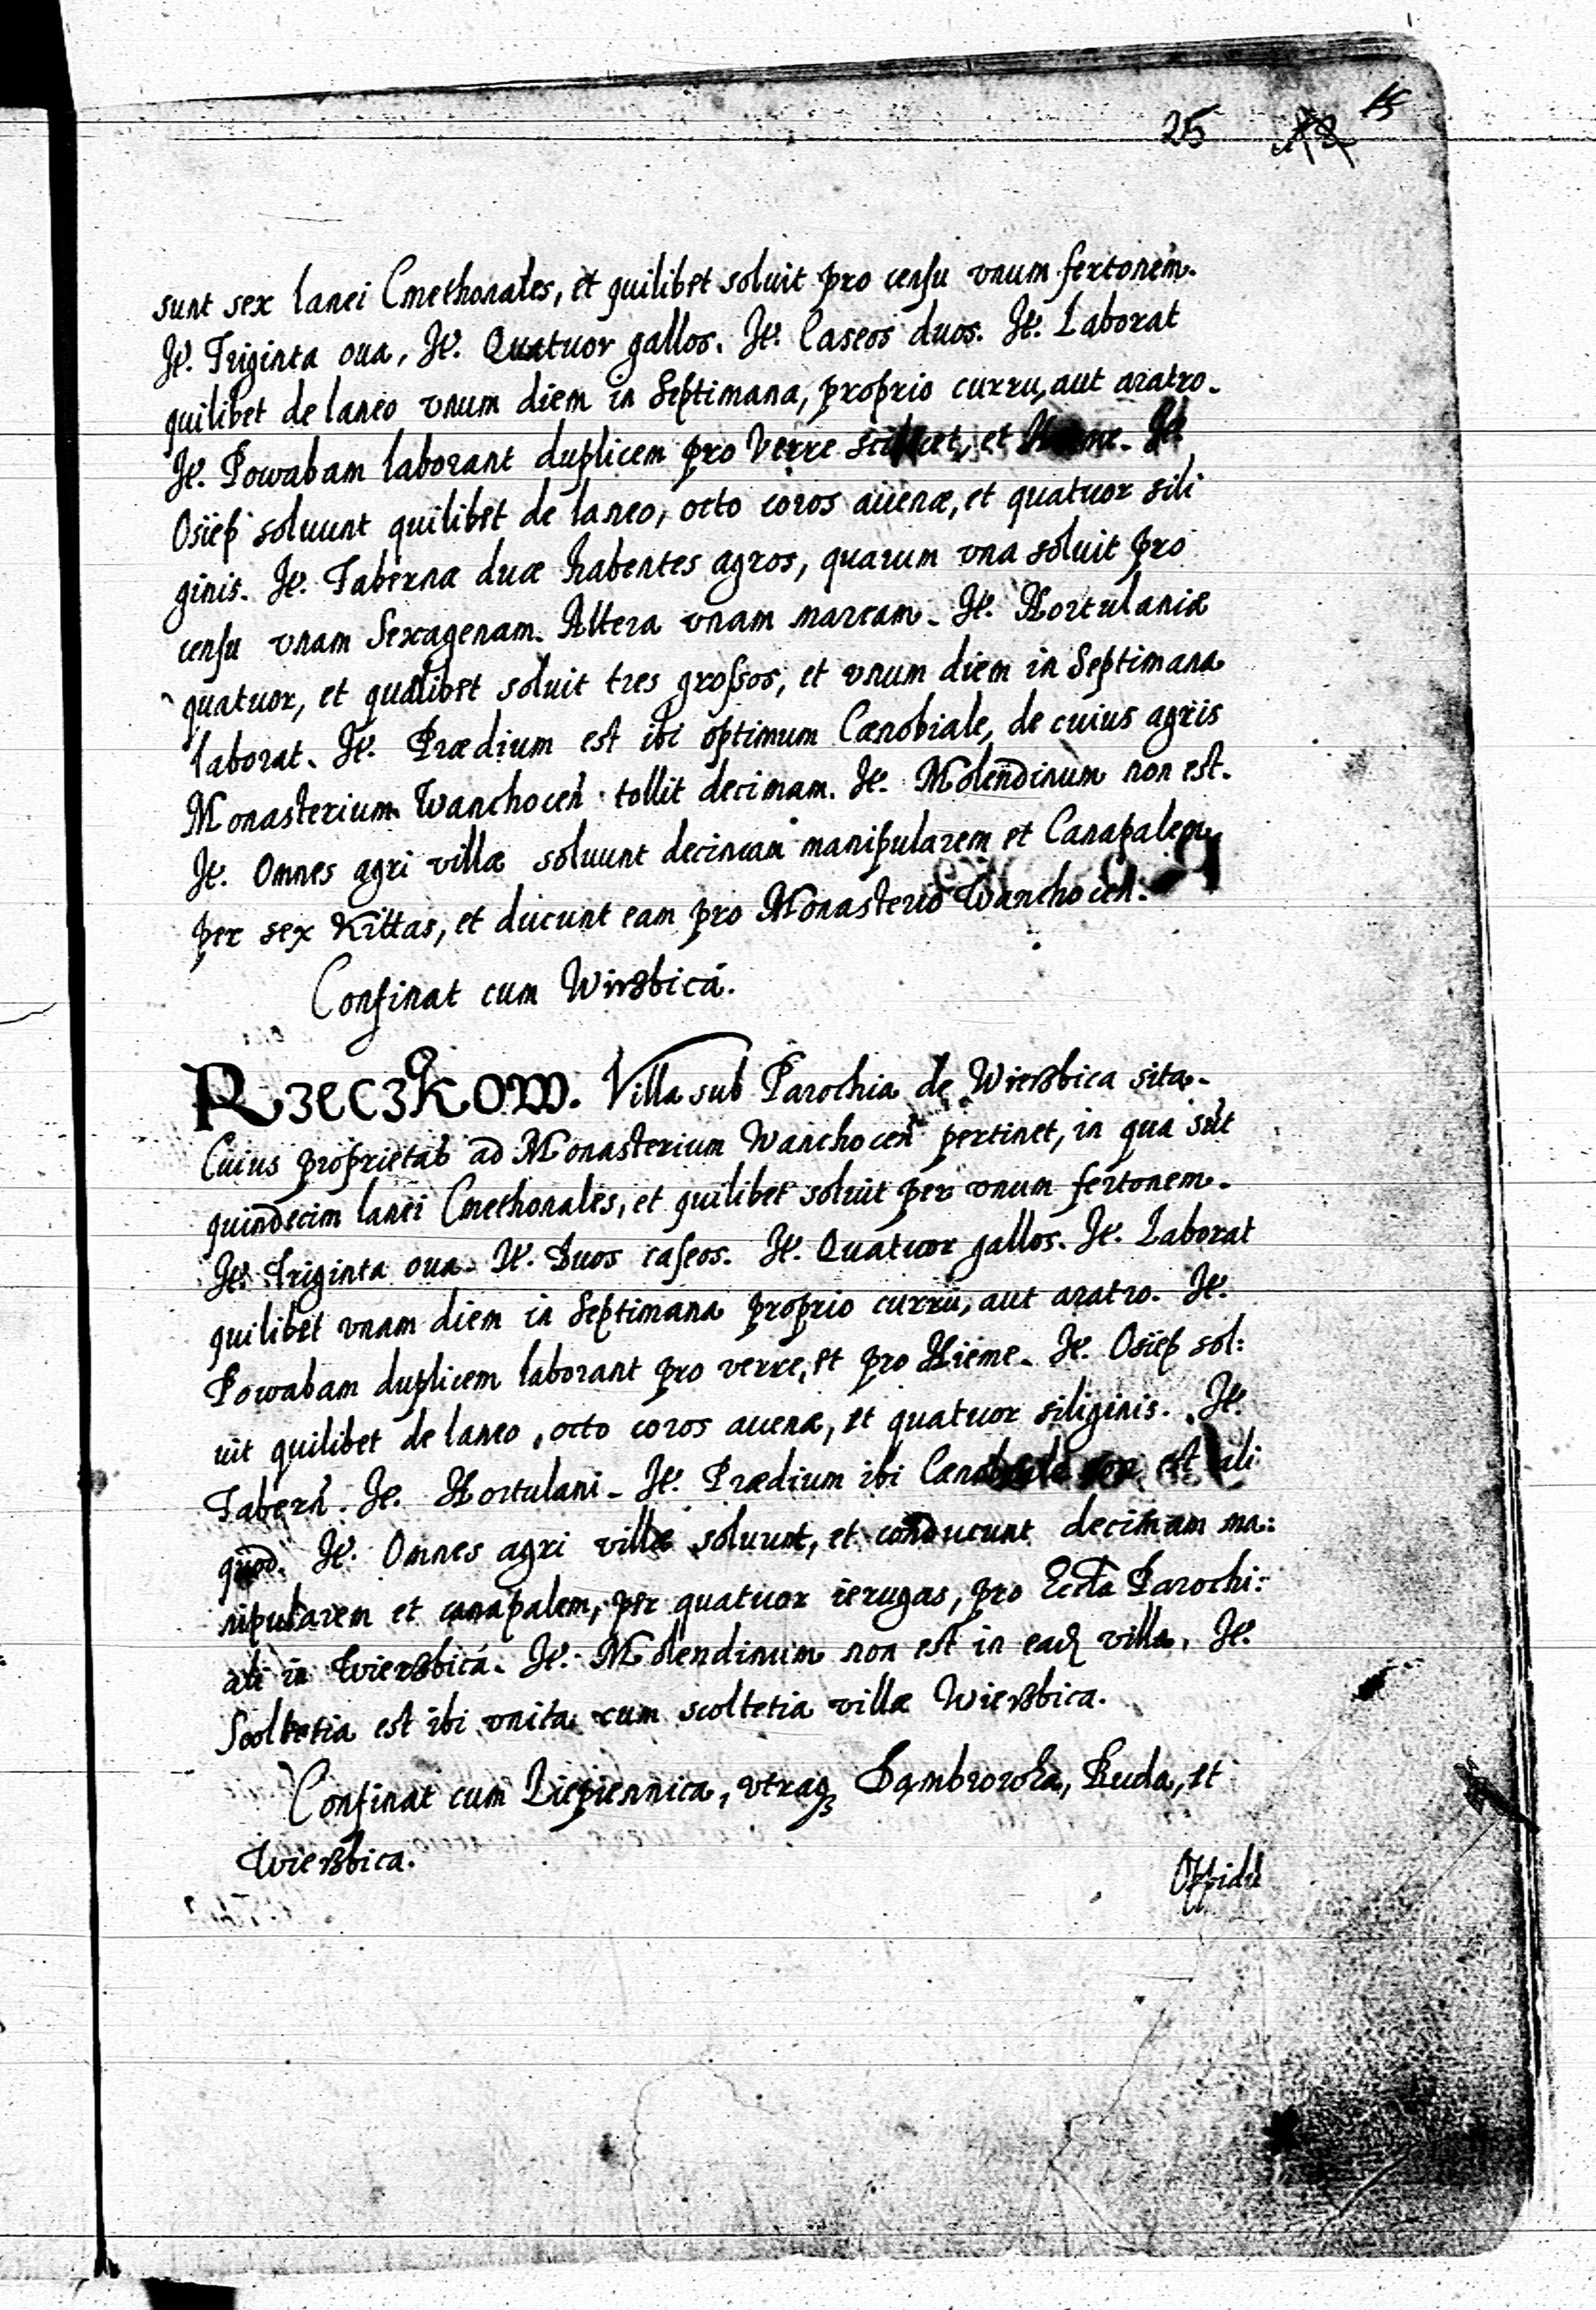 25 15
sunt sex lanei Cmethonales, et quilibet soluit pro censu vnum fertonem.
It. Triginta oua, It. Quatuor gallos. It. Caseos duos. It. Laborat
quilibet de laneo vnum diem in Septimana, proprio curru, aut aratro.
It. Powabam laborant duplicem pro Verre scilicet, et Hieme. It.
Osiep soluunt quilibet de laneo, octo coros auenæ, et quatuor sili
ginis. It. Tabernæ duæ habentes agros, quarum vna soluit pro
censu vnam Sexagenam. Altera vnam marcam. It. Hortulaniæ
quatuor, et quælibet soluit tres grossos, et vnum diem in Septimana
laborat. It. Prædium est ibi optimum Cænobiale, de cuius agris
Monasterium Wanchocen̄ tollit decimam. It. Molendinum non est.
It. Omnes agri villæ soluunt decimam manipularem et Canapalem
per sex Kittas, et ducunt eam pro Monasterio Wanchocen̄.
Confinat cum Wirzbicá.
Rzeczkow. Villa sub Parochia de Wierzbica sita.
Cuius proprietas ad Monasterium Wanchocen̄ pertinet, in qua sūt
quindecim lanei Cmethonales, et quilibet soluit per vnum fertonem.
It. Triginta oua. It. Duos caseos. It. Quatuor gallos. It. Laborat
quilibet vnam diem in Septimana proprio curru, aut aratro. It.
Powabam duplicem laborant pro verre, et pro Hieme. It. Osiep sol:
uit quilibet de laneo, octo coros auenæ, et quatuor siliginis. It.
Tabern̄. It. Hortulani. It. Prædium ibi Cænobiale non est ali
quod. It. Omnes agri villæ soluunt, et conducunt decimam ma:
nipularem et canapalem, per quatuor ierugas, pro Eccła Parochi:
ali in Wierzbicá. It. Molendinum non est in eadȝ villa. It.
Scoltetia est ibi vnita cum scoltetia villæ Wierzbica.
Confinat cum Liepiennica, vtraqȝ Dąmbrowka, Ruda, et
Wierzbica.
Oppidū